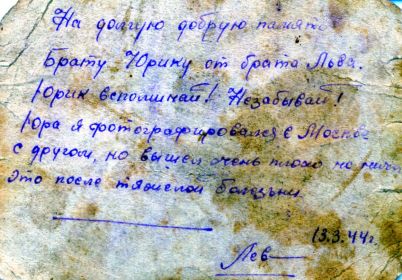 На долгую добрую память
Брату Юрику от брата Льва.
Юрик вспоминай! Незабывай!
Юра я фотографировался в Москве
с другом, но вышел очень плохо но ничего
это после тяжелой болезьни
13.3.44г.
Лев